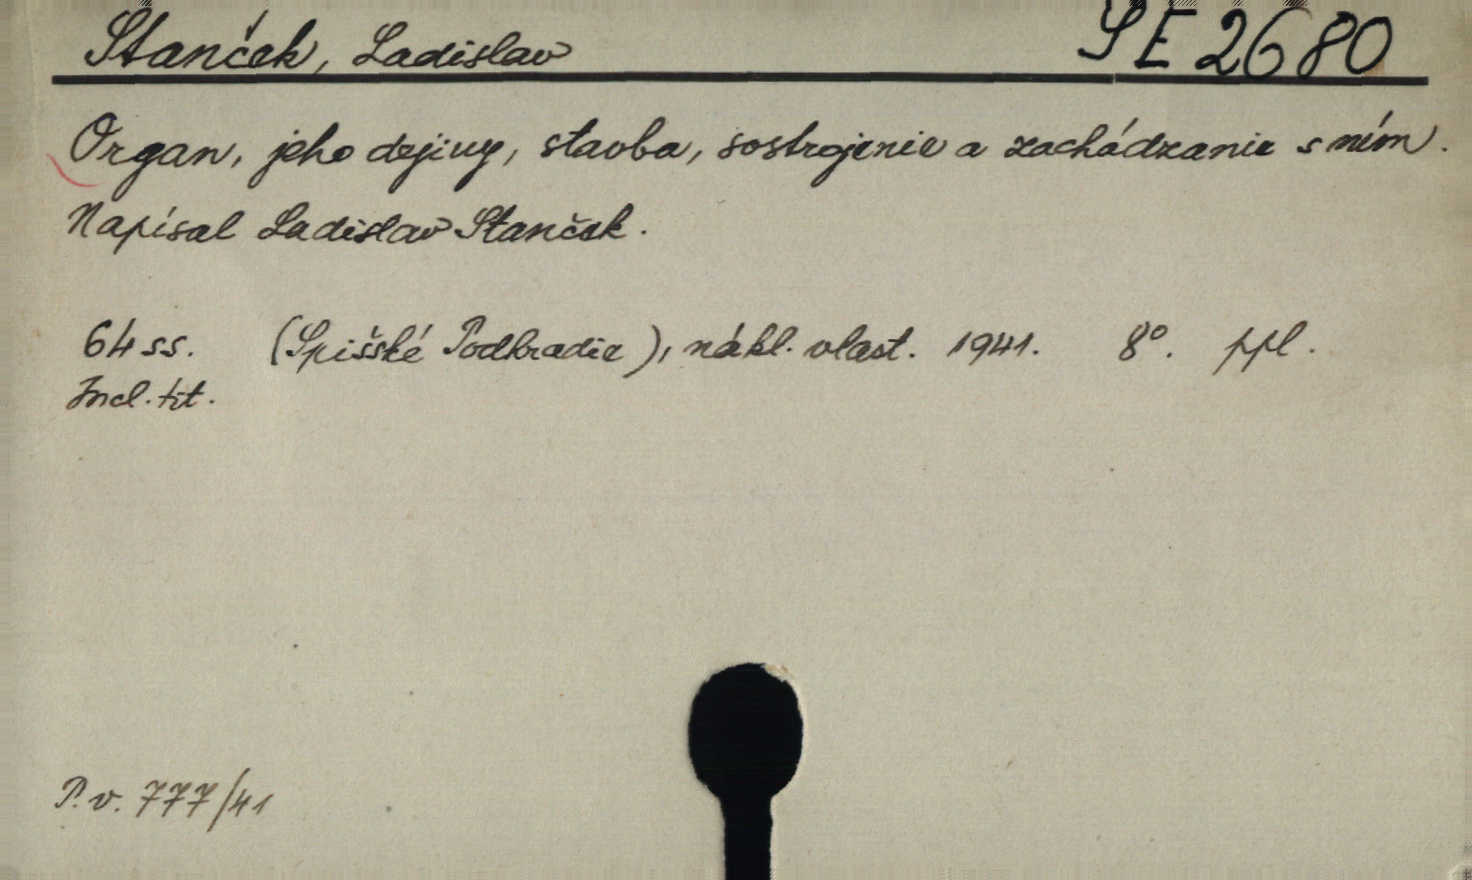 Stanček, Ladislav SE 2680
Organ, jeho dejiny, stavba, sostrojenie a zachádzanie s ním.
Napísal Ladislav Stanček.
64 ss. (Spišské Podhradie), nákl. vlast. 1941. 8°. ppl.
Incl. tit.
P. v. 777/41